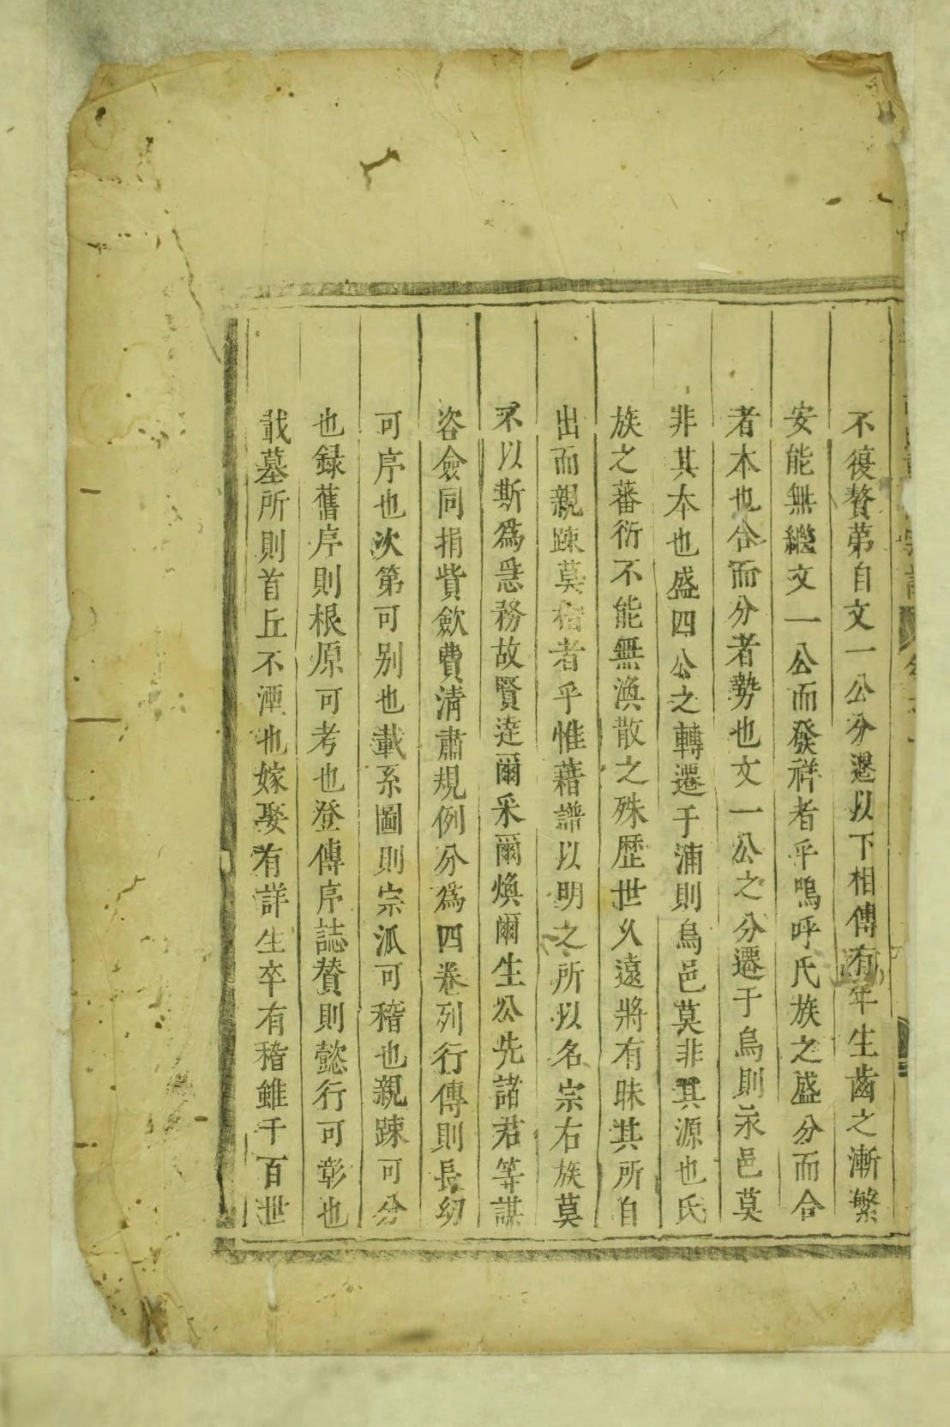 不復贅苐自文一公分遷以下相傳有年生齒之漸繁
安能無繼文一公而發祥者乎嗚呼氏族之盛分而合
者本也合而分者勢也文一公之分遷于烏則永邑莫
非其本也盛四公之轉遷于浦則烏邑莫非其源也氏
族之蕃衍不能無渙散之殊歷世久遠將有昧其所自
出而親踈莫稽者乎惟藉譜以明之所以名宗右族莫
不以斯為急務故賢達爾采爾煥爾生公先諸君等謀
咨僉同捐貲歛費清肅規例分為四卷列行傳則長幼
可序也次第可别也載系圖則宗派可稽也親踈可分
也録舊序則根原可考也登傳序誌賛則懿行可彰也
載墓所則首丘不湮也嫁娶有詳生卒有稽雖千百世